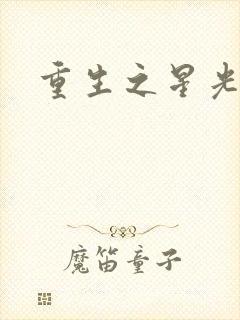 重生之星光
魔笛童子